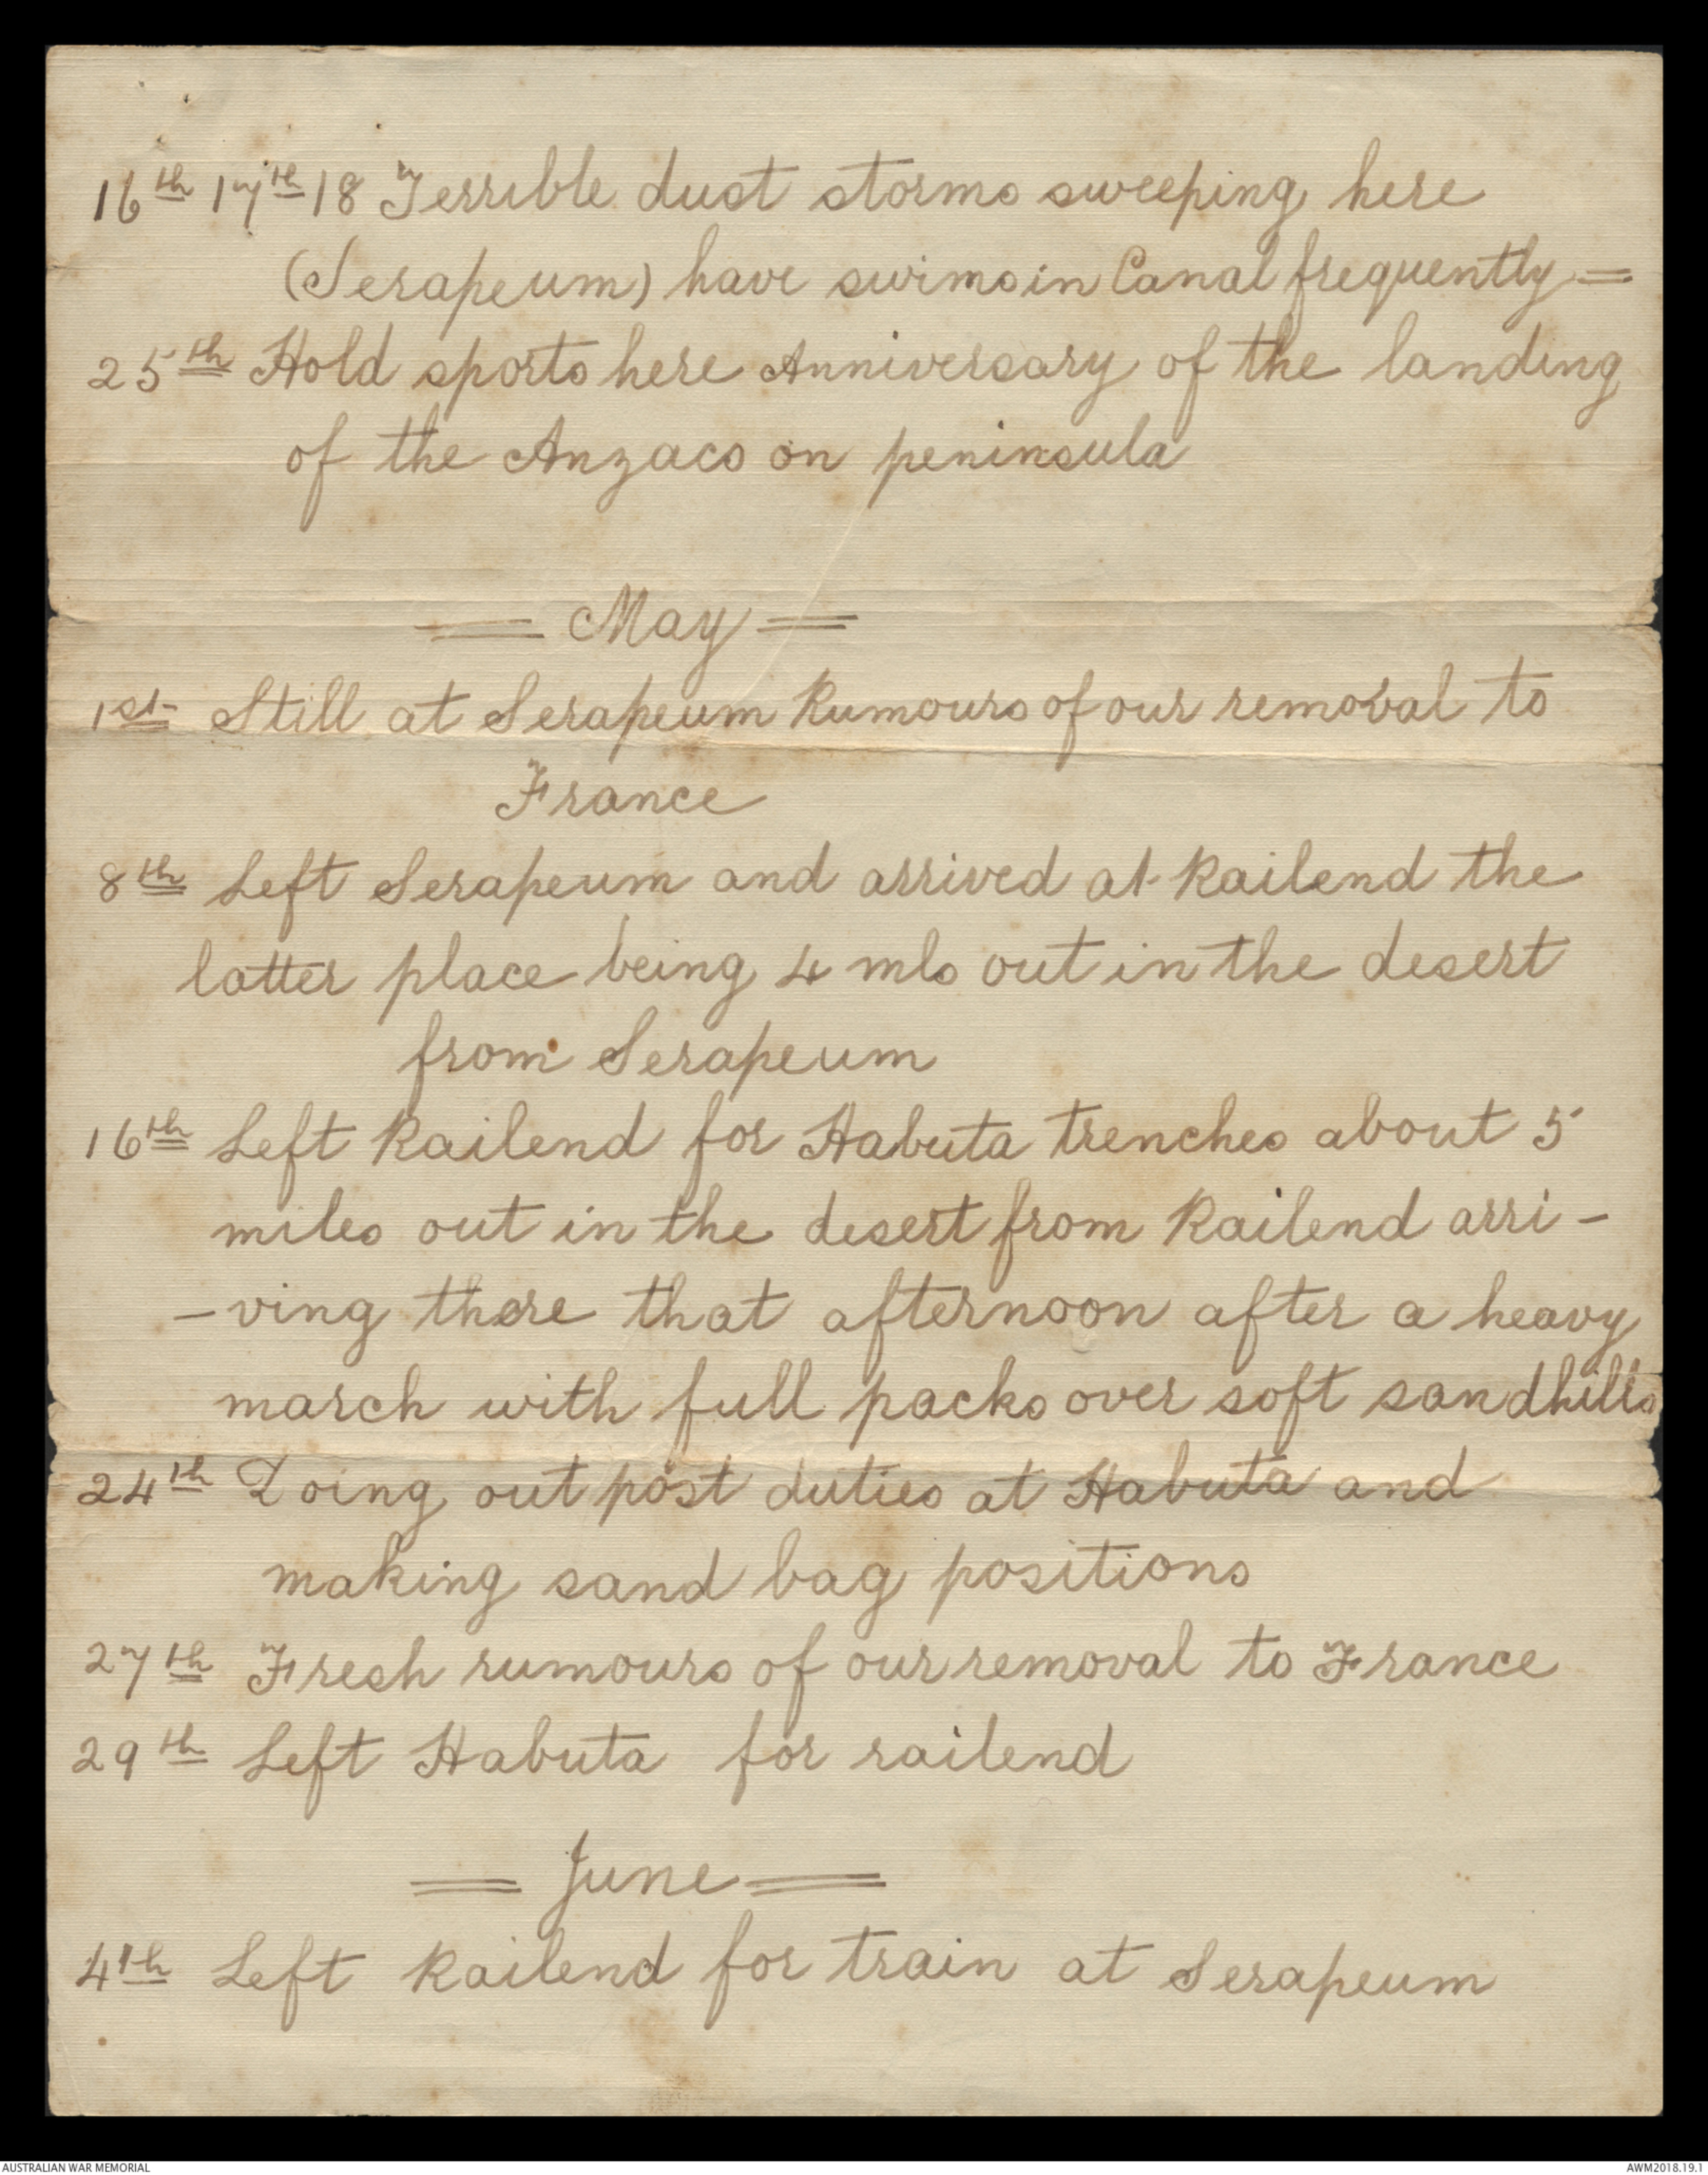 16th 17th 18 Terrible dust storms sweeping here
(Serapeum) have swims in Canal frequently =
25th Hold sports here Anniversary of the landing
of the Anzacs on peninsula
= May =
1st Still at Serapeum Rumours of our removal to
France
8th Left Serapeum and arrived at Railend the
latter place being 4 mls out in the desert
from Serapeum
16th Left Railend for Habuta trenches about 5
miles out in the desert from Railend arri -
- ving there that afternoon after a heavy
march with full packs over soft sandhills
24th Doing out post duties at Habuta and
making sand bag positions
27th Fresh rumours of our removal to France
29th Left Habuta for railend
= June =
4th Left Railend for train at Serapeum
AUSTRALIAN WAR MEMORIAL
AWM2018.19.1